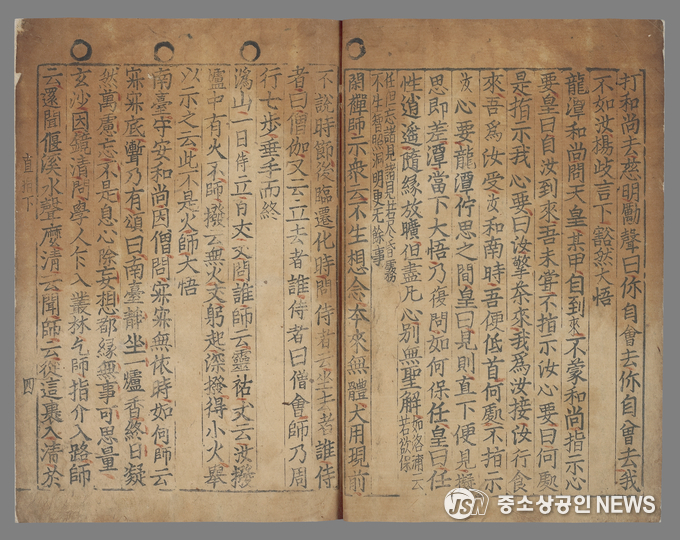 打和尚去慈明勵聲曰你自會去你自曾去我
不如汝楊歧言下豁然大悟
龍潭和尚問天皇某甲自到來不蒙和尚指示心
要皇曰自汝到來吾未甞不指示汝心要曰何處
是指示我心要曰汝擎茶來我爲汝接汝行食
來吾爲汝受汝和南時吾便低首何處不指示
汝心要龍潭佇思之間皇曰見則直下便見擬
思即差潭當下大悟乃復問如何保任皇曰任
性逍遙隨緣放曠但盡凡心別無聖解
若欲保
任但忘諸見諸見若尽昏霧
不生智照洞明更无餘事
禪師示衆云不生想念本來無體大用現前
不說時節後臨遷化時問侍者云坐去者誰侍
者曰僧伽又云立去者誰侍者曰僧會師乃周
行七步垂手而終
溈山一日侍立百丈丈問誰師云靈祐丈云汝撥
爐中有火不師撥云無火丈躬起深撥得小火擧
以示之云此不是火師大悟
南臺守安和尚因僧問寂寂無依時如何師云
寂寂底漸乃有頌曰南臺靜坐一爐香終日凝
然萬慮忘不是息心除妄想都緣無事可思量
玄沙因鏡清問學人乍入叢林乞師指介入路師
云還聞偃溪水聲麽清云聞師云從這裏入清於
直指下
四
JSN 중소상공인 NEWS